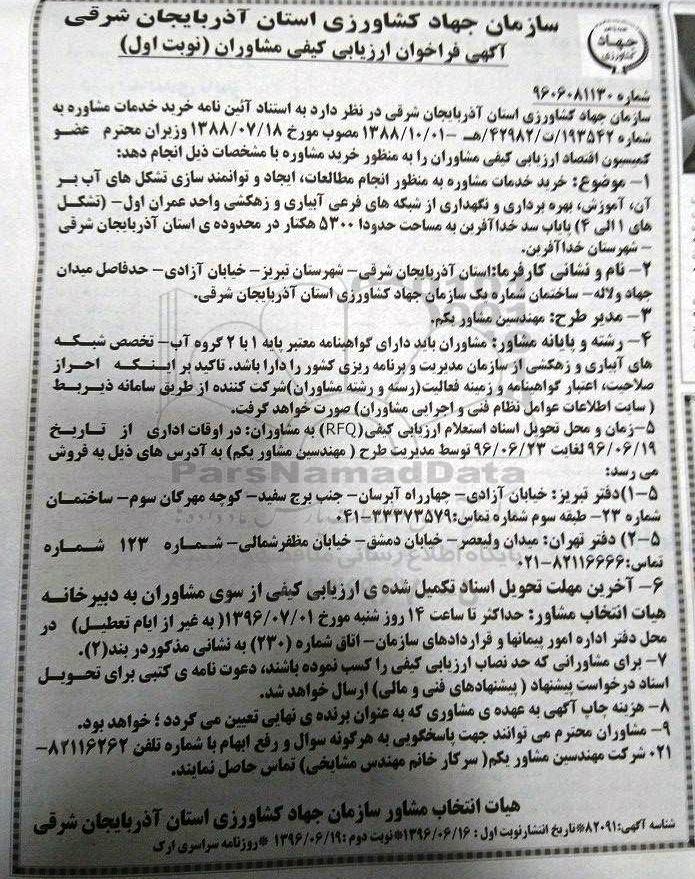 سازمان جهاد کشاورزی استان آذربایجان شرقی
آگهی فراخوان ارزیابی کیفی مشاوران (نوبت اول)
جهاد
کشاورزی
شماره ۹۶۰۶۰۸۱۱۳۰
سازمان جهاد کشاورزی استان آذربایجان شرقی در نظر دارد به استناد آئین نامه خرید خدمات مشاوره به
شماره ۱۹۳۵۴۲/ت/۴۲۹۸۲هـ –۱۳۸۸/۱۰/۰۱ مصوب مورخ ۱۳۸۸/۰۷/۱۸ وزیران محترم عضو
کمیسیون اقتصاد ارزیابی کیفی مشاوران را به منظور خرید مشاوره با مشخصات ذیل انجام دهد:
۱– موضوع: خرید خدمات مشاوره به منظور انجام مطالعات، ایجاد و توانمند سازی تشکل های آب بر
آن، آموزش، بهره برداری و نگهداری از شبکه های فرعی آبیاری و زهکشی واحد عمران اول– (تشکل
های ۱ الی ۴) پایاب سد خداآفرین به مساحت حدودا ۵۳۰۰ هکتار در محدوده ی استان آذربایجان شرقی
– شهرستان خداآفرین.
۲– نام و نشانی کارفرما:استان آذربایجان شرقی– شهرستان تبریز– خیابان آزادی– حدفاصل میدان
جهاد ولاله– ساختمان شماره یک سازمان جهاد کشاورزی استان آذربایجان شرقی.
۳– مدیر طرح: مهندسین مشاور یکم.
۴– رشته و پایانه مشاور: مشاوران باید دارای گواهینامه معتبر پایه ۱ یا ۲ گروه آب– تخصص شبکه
های آبیاری و زهکشی از سازمان مدیریت و برنامه ریزی کشور را دارا باشد. تاکید بر اینکه احراز
صلاحیت، اعتبار گواهینامه و زمینه فعالیت(رسته و رشته مشاوران)شرکت کننده از طریق سامانه ذیربط
( سایت اطلاعات عوامل نظام فنی و اجرایی مشاوران) صورت خواهد گرفت.
۵–زمان و محل تحویل اسناد استعلام ارزیابی کیفی(RFQ) به مشاوران: در اوقات اداری از تاریخ
۹۶/۰۶/۱۹ لغایت ۹۶/۰۶/۲۳ توسط مدیریت طرح ( مهندسین مشاور یکم) به آدرس های ذیل به فروش
می رسد:
ParsNamadData
۵–۱)دفتر تبریز: خیابان آزادی– چهارراه آبرسان– جنب برج سفید– کوچه مهرگان سوم– ساختمان
شماره ۲۳– طبقه سوم شماره تماس:۳۳۳۷۳۵۷۹–۰۴۱
۵–۲) دفتر تهران: میدان ولیعصر– خیابان دمشق– خیابان مظفرشمالی– شماره ۱۲۳ شماره
تماس:۸۲۱۱۶۶۶۶–۰۲۱
۶– آخرین مهلت تحویل اسناد تکمیل شده ی ارزیابی کیفی از سوی مشاوران به دبیرخانه
هیات انتخاب مشاور: حداکثر تا ساعت ۱۴ روز شنبه مورخ ۱۳۹۶/۰۷/۰۱( به غیر از ایام تعطیل) در
محل دفتر اداره امور پیمانها و قراردادهای سازمان– اتاق شماره (۲۳۰) به نشانی مذکوردر بند(۲).
۷– برای مشاورانی که حد نصاب ارزیابی کیفی را کسب نموده باشند، دعوت نامه ی کتبی برای تحویل
اسناد درخواست پیشنهاد ( پیشنهادهای فنی و مالی) ارسال خواهد شد.
۸– هزینه چاپ آگهی به عهده ی مشاوری که به عنوان برنده ی نهایی تعیین می گردد ؛ خواهد بود.
۹– مشاوران محترم می توانند جهت پاسخگویی به هرگونه سوال و رفع ابهام با شماره تلفن ۸۲۱۱۶۲۶۲–
۰۲۱ شرکت مهندسین مشاور یکم( سرکار خانم مهندس مشایخی) تماس حاصل نمایند.
هیات انتخاب مشاور سازمان جهاد کشاورزی استان آذربایجان شرقی
شناسه آگهی:۸۲۰۹۱*تاریخ انتشارنوبت اول : ۱۳۹۶/۰۶/۱۶*نوبت دوم :۱۳۹۶/۰۶/۱۹ *روزنامه سراسری ارک